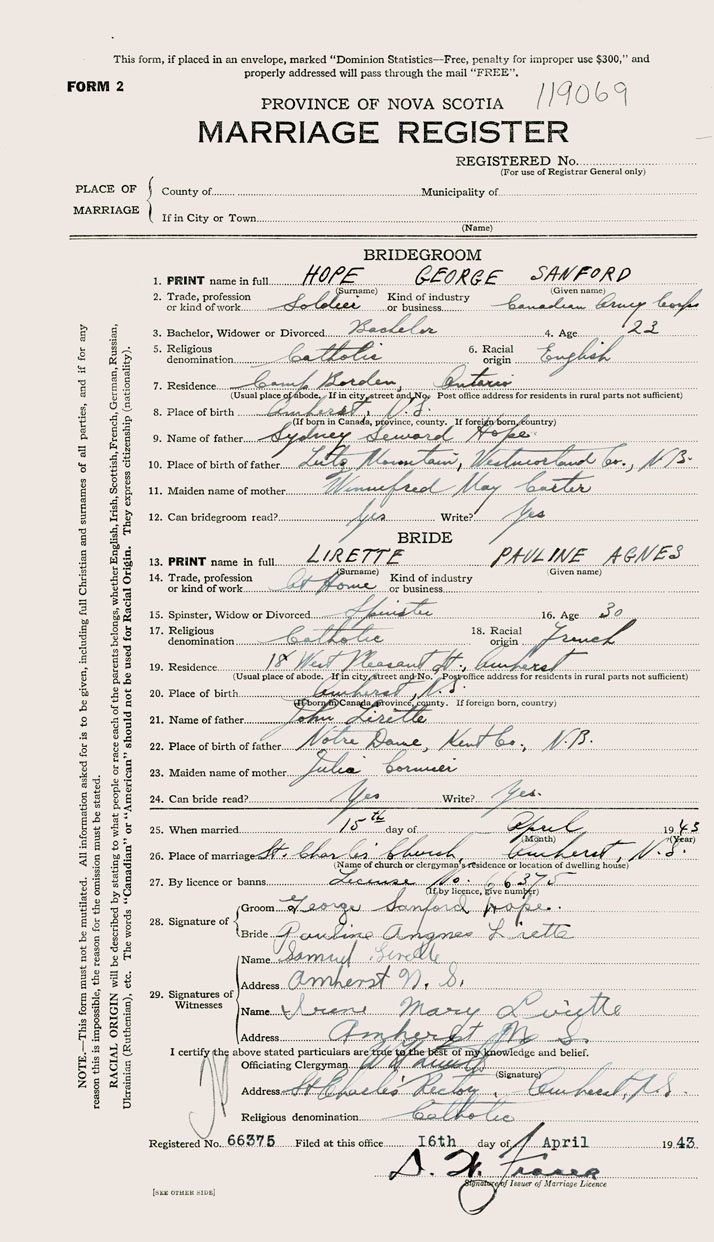 This form, if placed in an envelope, marked "Dominion Statistics—Free, penalty for improper use $300," and
properly addressed will pass through the mail "FREE".
FORM 2
PROVINCE OF NOVA SCOTIA 119069
MARRIAGE REGISTER
REGISTERED No.
(For use of Registrar General only)
PLACE OF MARRIAGE
County of Municipality of
If in City or Town
(Name)
BRIDEGROOM
1. PRINT name in full HOPE GEORGE SANFORD
(Surname) (Given name)
2. Trade, profession or kind of work Soldier Kind of industry or business Canadian Army Corps
3. Bachelor, Widower or Divorced Bachelor 4. Age 23
5. Religious denomination Catholic 6. Racial origin English
7. Residence Camp Borden, Ontario
(Usual place of abode. If in city, street and No. Post office address for residents in rural parts not sufficient)
8. Place of birth Amherst, N.S.
(If born in Canada, province, county. If foreign born, country)
9. Name of father Sydney Seward Hope
10. Place of birth of father Lutz Mountain, Westmorland Co., N.B.
11. Maiden name of mother Winnefred May Carter
12. Can bridegroom read? Yes Write? Yes
BRIDE
13. PRINT name in full LIRETTE PAULINE AGNES
(Surname) (Given name)
14. Trade, profession or kind of work At Home Kind of industry or business
15. Spinster, Widow or Divorced Spinster 16. Age 30
17. Religious denomination Catholic 18. Racial origin French
19. Residence 18 West Pleasant St., Amherst
(Usual place of abode. If in city, street and No. Post office address for residents in rural parts not sufficient)
20. Place of birth Amherst, N.S.
(If born in Canada, province, county. If foreign born, country)
21. Name of father John Lirette
22. Place of birth of father Notre Dame, Kent Co., N.B.
23. Maiden name of mother Julia Cormier
24. Can bride read? Yes Write? Yes.
25. When married 15th day of April 1943
(Month) (Year)
26. Place of marriage St. Charles' Church, Amherst, N.S.
(Name of church or clergyman's residence or location of dwelling house)
27. By licence or banns License No. 66375
(If by licence, give number)
28. Signature of
Groom George Sanford Hope.
Bride Pauline Angnes Lirette
29. Signatures of Witnesses
Name Samuel
Address Amherst N.S.
Name Irene Mary
Address Amherst N.S.
I certify the above stated particulars are true to the best of my knowledge and belief.
Officiating Clergyman
(Signature)
Address St Charles' Rectory, Amherst, N.S.
Religious denomination Catholic
Registered No. 66375 Filed at this office 16th day of April 1943.
Signature of Issuer of Marriage Licence
[SEE OTHER SIDE]
NOTE.—This form must not be mutilated. All information asked for is to be given, including full Christian and surnames of all parties, and if for any
reason this is impossible, the reason for the omission must be stated.
RACIAL ORIGIN will be described by stating to what people or race each of the parents belongs, whether English, Irish, Scottish, French, German, Russian,
Ukrainian (Ruthenian), etc. The words "Canadian" or "American" should not be used for Racial Origin. They express citizenship (nationality).